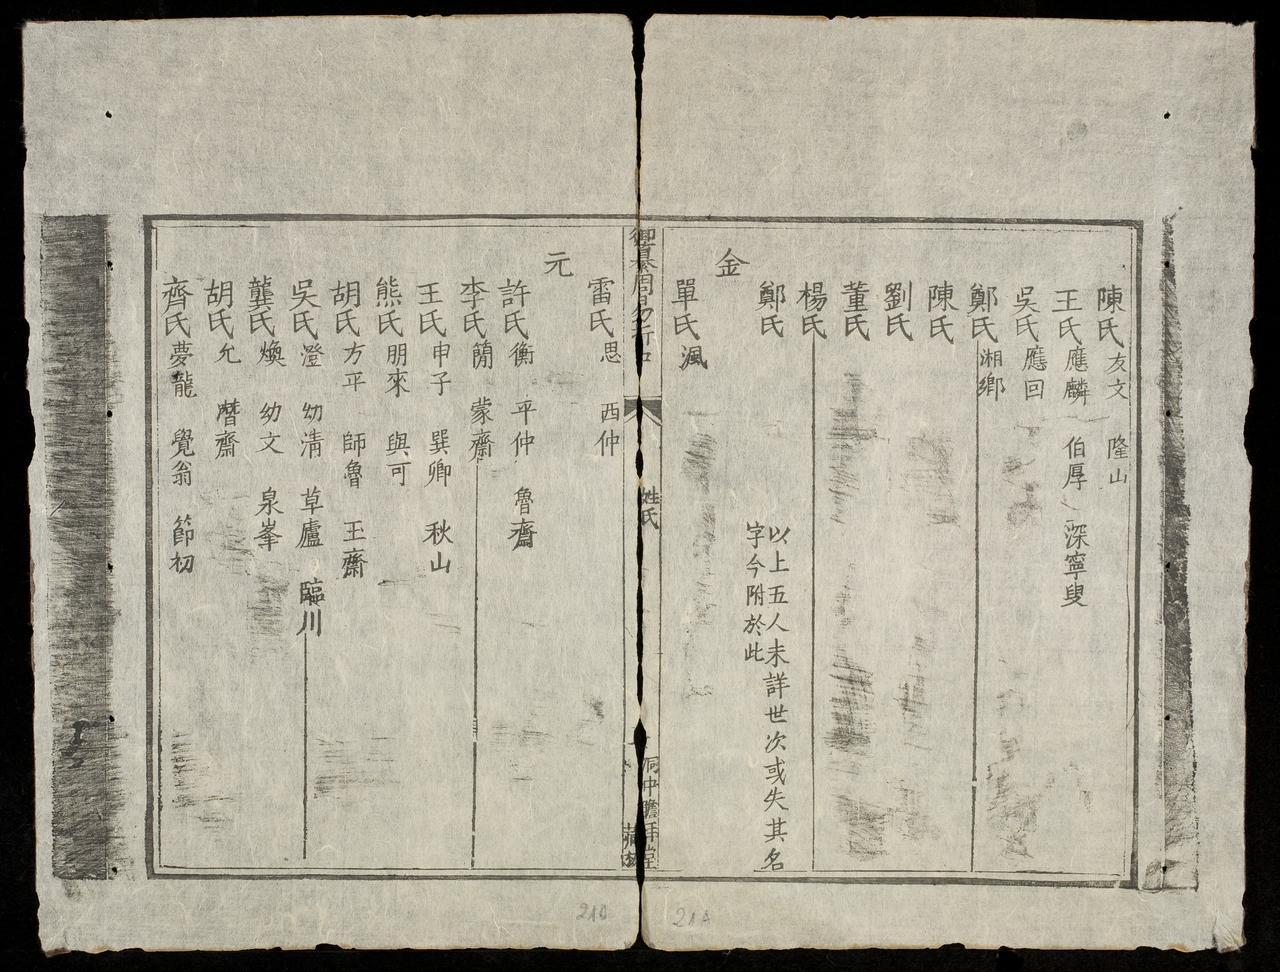 陳氏友文 隆山
王氏應麟 伯厚 深寧叟
吳氏應回
鄭氏湘鄉
陳氏
劉氏
董氏
楊氏
鄭氏 以上五人未詳世次或失其名
字今附於此
金
單氏渢
御纂周易折中
姓氏
雷氏思 西仲
元
許氏衡 平仲 魯齋
李氏簡 蒙齋
王氏申子 巽卿 秋山
熊氏朋來 與可
胡氏方平 師魯 玉齋
吳氏澄 幼清 草廬 臨川
龔氏煥 幼文 泉峯
胡氏允 潛齋
齊氏夢龍 覺翁 節初
21B
21A